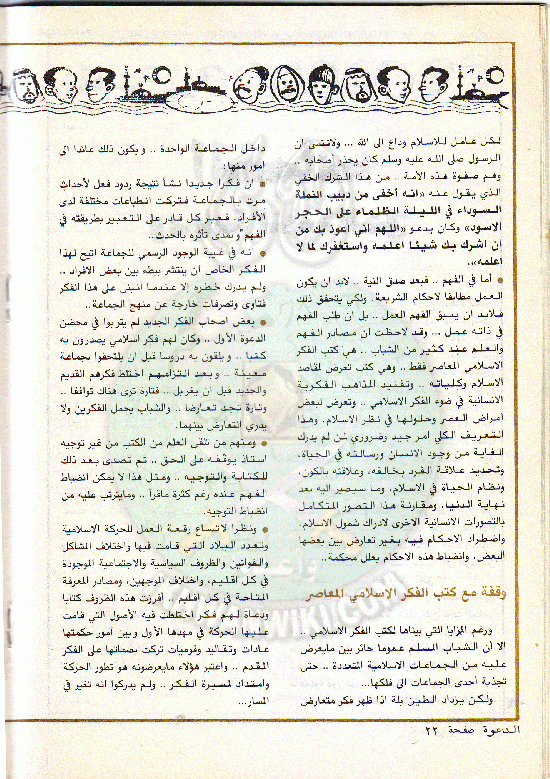 لكل عامل للاسلام وداع الى الله ... ولاننسى ان
الرسول صلى الله عليه وسلم كان يحذر أصحابه ..
وهم صفوة هذه الأمة .. من هذا الشرك الخفي
الذي يقول عنه «انه أخفى من دبيب النملة
السوداء في الليلة الظلماء على الحجر
الاسود» وكان يدعو «اللهم اني اعوذ بك من
ان اشرك بك شيئا اعلمه واستغفرك لما لا
اعلمه».
● أما في الفهم .. فبعد صدق النية .. لابد ان يكون
العمل مطابقا لاحكام الشريعة. ولكي يتحقق ذلك
فلابد ان يسبق الفهم العمل .. بل ان طلب الفهم
في ذاته عمل ... وقد لاحظت ان مصادر الفهم
والعلم عند كثير من الشباب .. هي كتب الفكر
الاسلامي المعاصر فقط .. وهي كتب تعرض لمقاصد
الاسلام وكلياته .. وتفنيد المذاهب الفكرية
الانسانية في ضوء الفكر الاسلامي .. وتعرض لبعض
أمراض العصر وحلولها في نظر الاسلام. وهذا
التعريف الكلي امر جيد وضروري لمن لم يدرك
الغاية من وجود الانسان ورسالته في الحياة،
وتحديد علاقة الفرد بخالقه، وعلاقته بالكون،
ونظام الحياة في الاسلام، وما سيصير اليه بعد
نهاية الدنيا، ومقارنة هذا التصور المتكامل
بالتصورات الانسانية الاخرى لادراك شمول الاسلام،
واضطراد الاحكام فيه بغير تعارض بين بعضها
البعض، وانضباط هذه الاحكام بعلل محكمة..
وقفة مع كتب الفكر الاسلامي المعاصر
ورغم المزايا التي بيناها لكتب الفكر الاسلامي ..
الا ان الشباب المسلم عموما حائر بين مايعرض
عليه من الجماعات الاسلامية المتعددة .. حتى
تجذبه أحدى الجماعات الى فلكها...
ولكن يزداد الطين بلة اذا ظهر فكر متعارض
داخل الجماعة الواحدة .. ويكون ذلك عائدا الى
امور منها:
● ان فكرا جديدا نشأ نتيجة ردود فعل لأحداث
مرت بالجماعة فتركت انطباعات مختلفة لدى
الأفراد. فعبر كل قادر على التعبير بطريقته في
الفهم وبمدى تأثره بالحدث..
● انه في غيبة الوجود الرسمي للجماعة اتيح لهذا
الفكر الخاص ان ينتشر ببطء بين بعض الافراد ..
ولم يدرك خطره إلا عندما انبنى على هذا الفكر
فتاوى وتصرفات خارجة عن منهج الجماعة..
● بعض اصحاب الفكر الجديد لم يتربوا في محضن
الدعوة الأول .. وكان لهم فكر اسلامي يصدرون به
كتبا .. ويلقون به دروسا قبل ان يلتحقوا بجماعة
معينة .. وبعد التزامهم اختلط فكرهم القديم
والجديد قبل ان يغربل .. فتارة ترى هناك توافقا ..
وتارة تجد تعارضا .. والشباب يحمل الفكرين ولا
يدري التعارض بينهما.
● ومنهم من تلقى العلم من الكتب من غير توجيه
استاذ يوقفه على الحق .. ثم تصدى بعد ذلك
للكتابة والتوجيه .. ومثل هذا لا يمكن انضباط
الفهم عنده رغم كثرة ماقرأ .. ومايترتب عليه من
انضباط التوجيه.
● ونظرا لاتساع رقعة العمل للحركة الاسلامية
وتعدد البلاد التي قامت فيها واختلاف المشاكل
والقوانين والظروف السياسية والاجتماعية الموجودة
في كل اقليم، واختلاف الموجهين، ومصادر المعرفة
المتاحة في كل اقليم .. أفرزت هذه الظروف كتابا
ودعاة لهم فكر اختلطت فيه الأصول التي قامت
عليها الحركة في مهدها الأول وبين أمور حكمتها
عادات وتقاليد وقوميات تركت بصماتها على الفكر
المقدم .. واعتبر هؤلاء مايعرضونه هو تطور الحركة
وامتداد لمسيرة الفكر .. ولم يدركوا انه تغير في
المسار...
الدعوة صفحة ٢٢
WIKI.COM